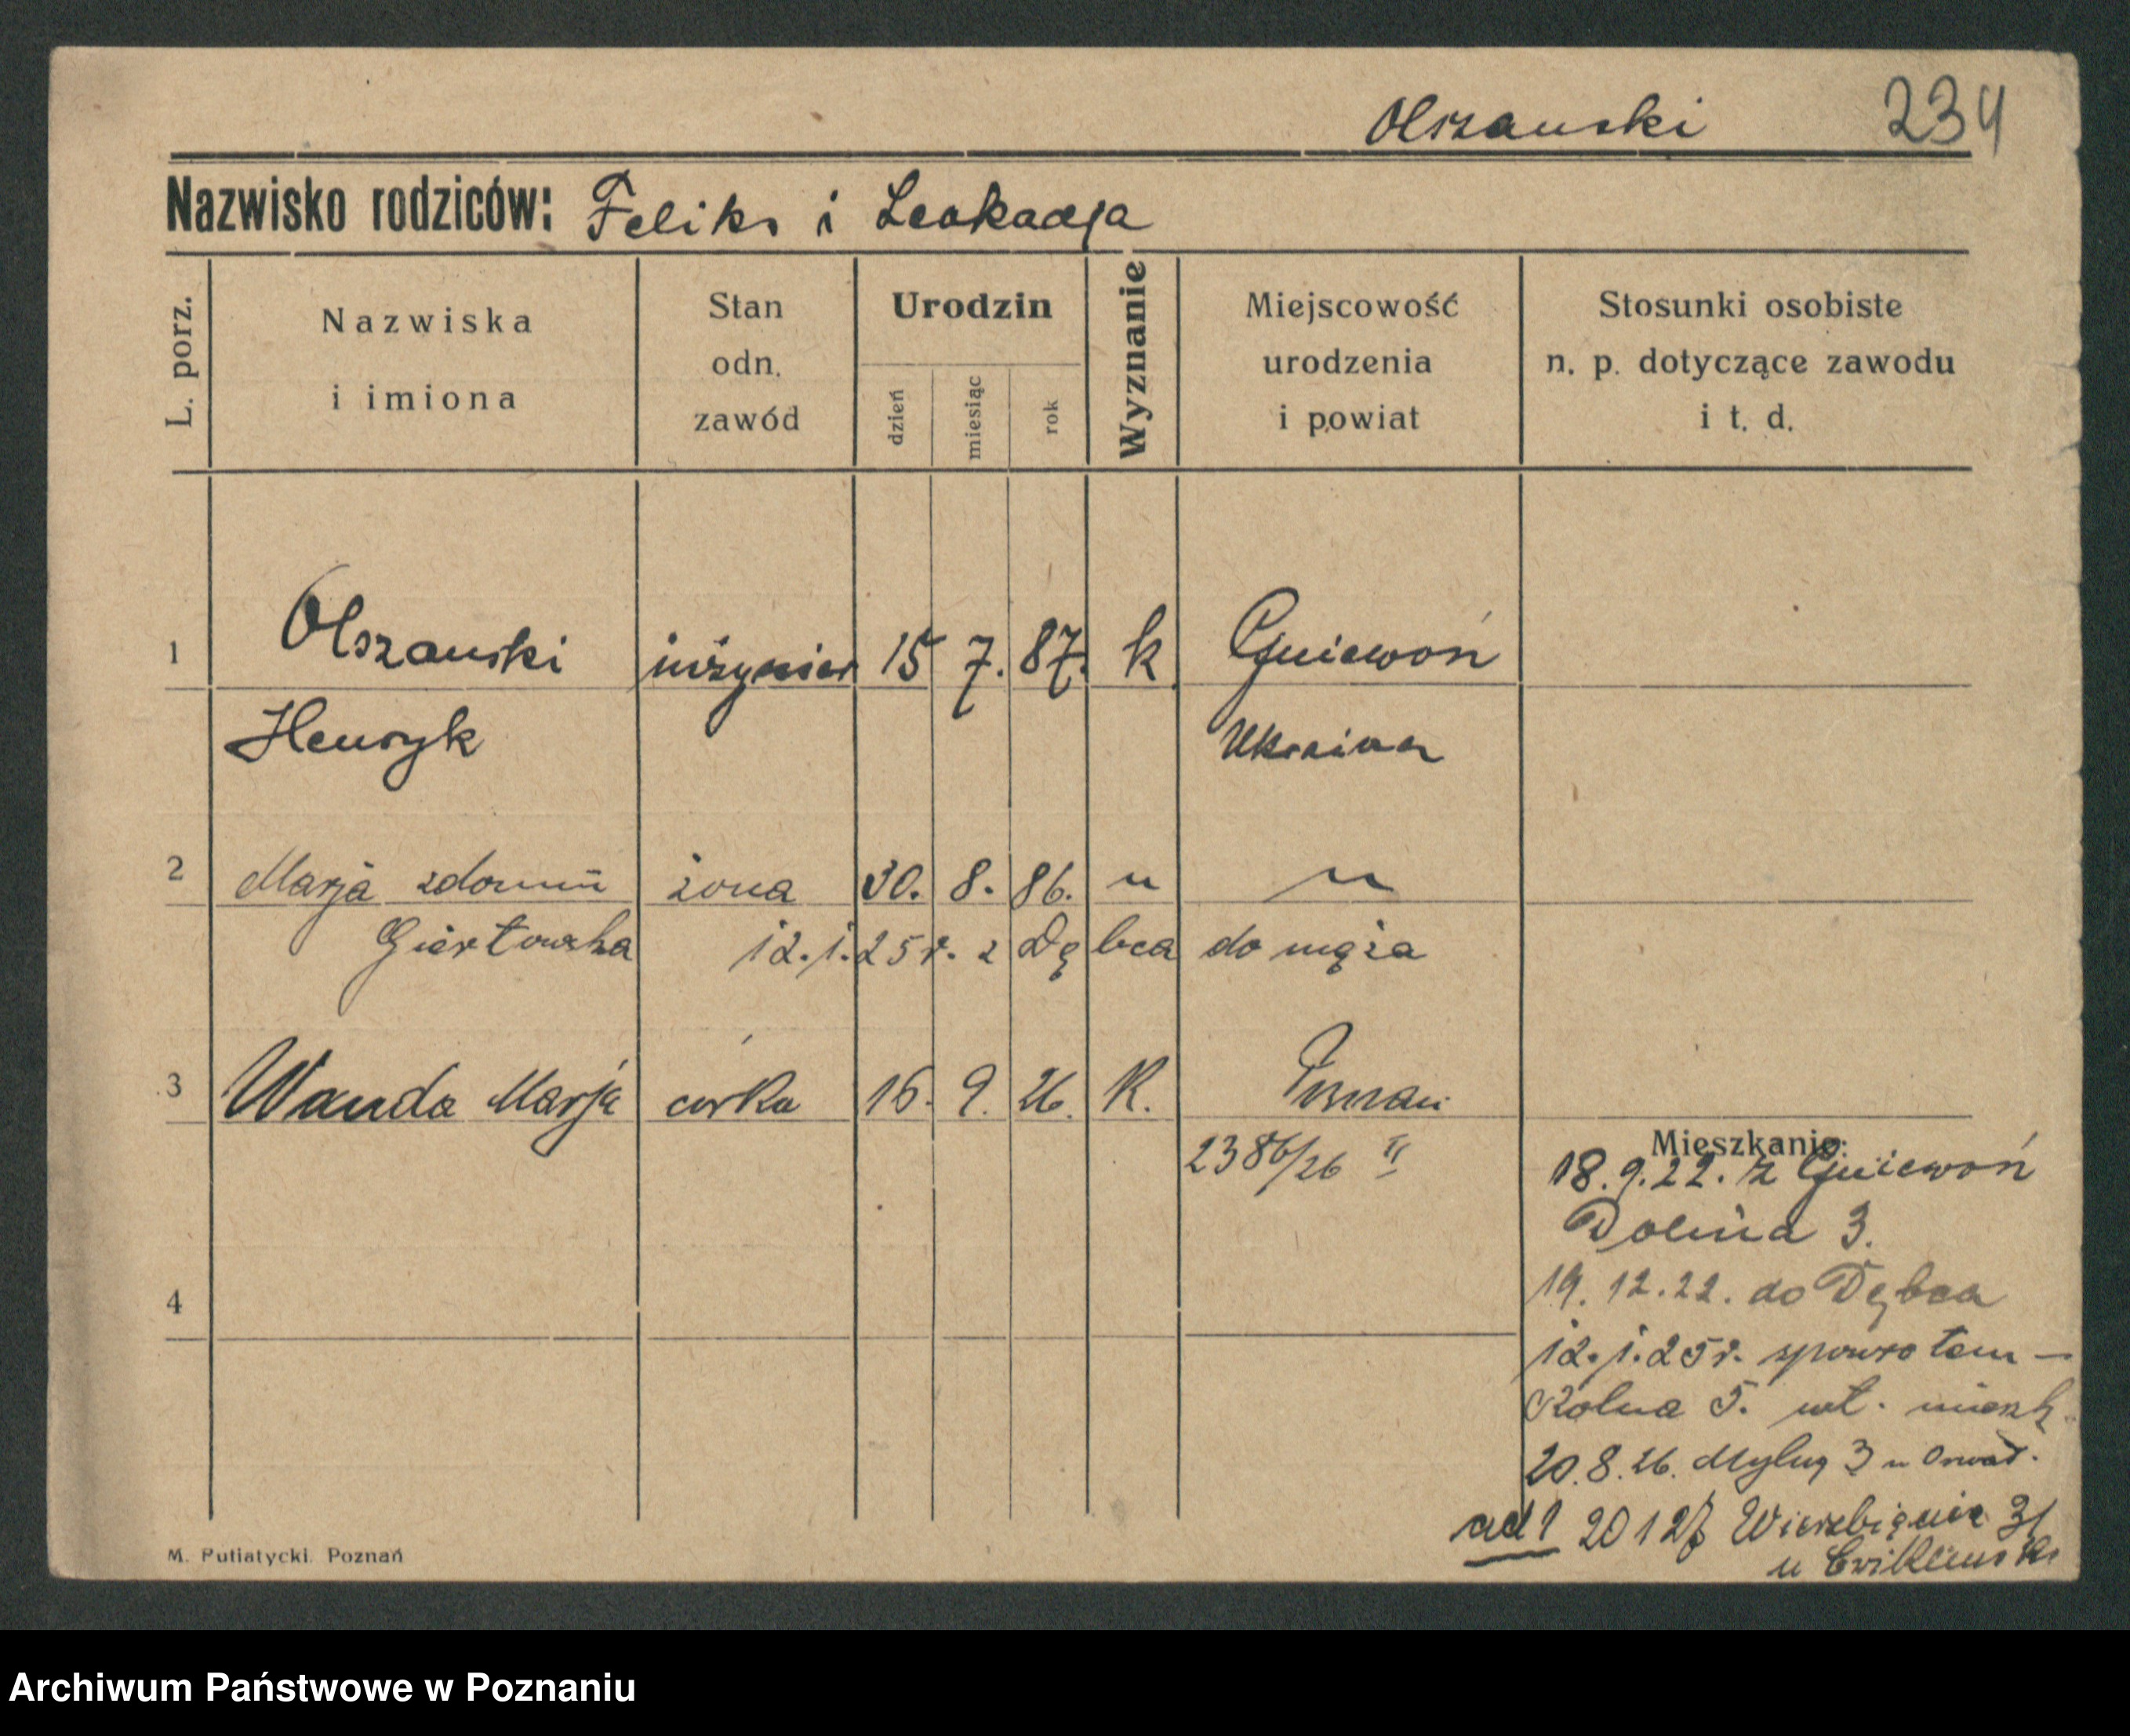 Olszanski 234
Nazwisko rodziców: Feliks i Leokadja
L. porz.
Nazwiska
i imiona
Stan
odn.
zawód
Urodzin
dzień
miesiąc
rok
Wyznanie
Miejscowość
urodzenia
i powiat
Stosunki osobiste
n. p. dotyczące zawodu
i t. d.
1 Olszanski inżynier 15 7. 87. k Gniewoń
Henryk Ukraina
2 Marja zdomu żona 30. 8. 86. " "
12.1.25r. z Dębca do męża
3 Wanda Marja córka 16. 9. 26. K. Poznań
2386/26 II
Mieszkanie:
18.9.22. z Gniewoń
Dolina 3.
19.12.22. do Dębca
12.1.25r. spowrotem —
Rolna 5. wł. mieszk.
20.8.26. Mylną 3 u
4
ad 1 20 1 27 Wierzbięcice 31
u
M. Putiatycki. Poznań
Archiwum Państwowe w Poznaniu